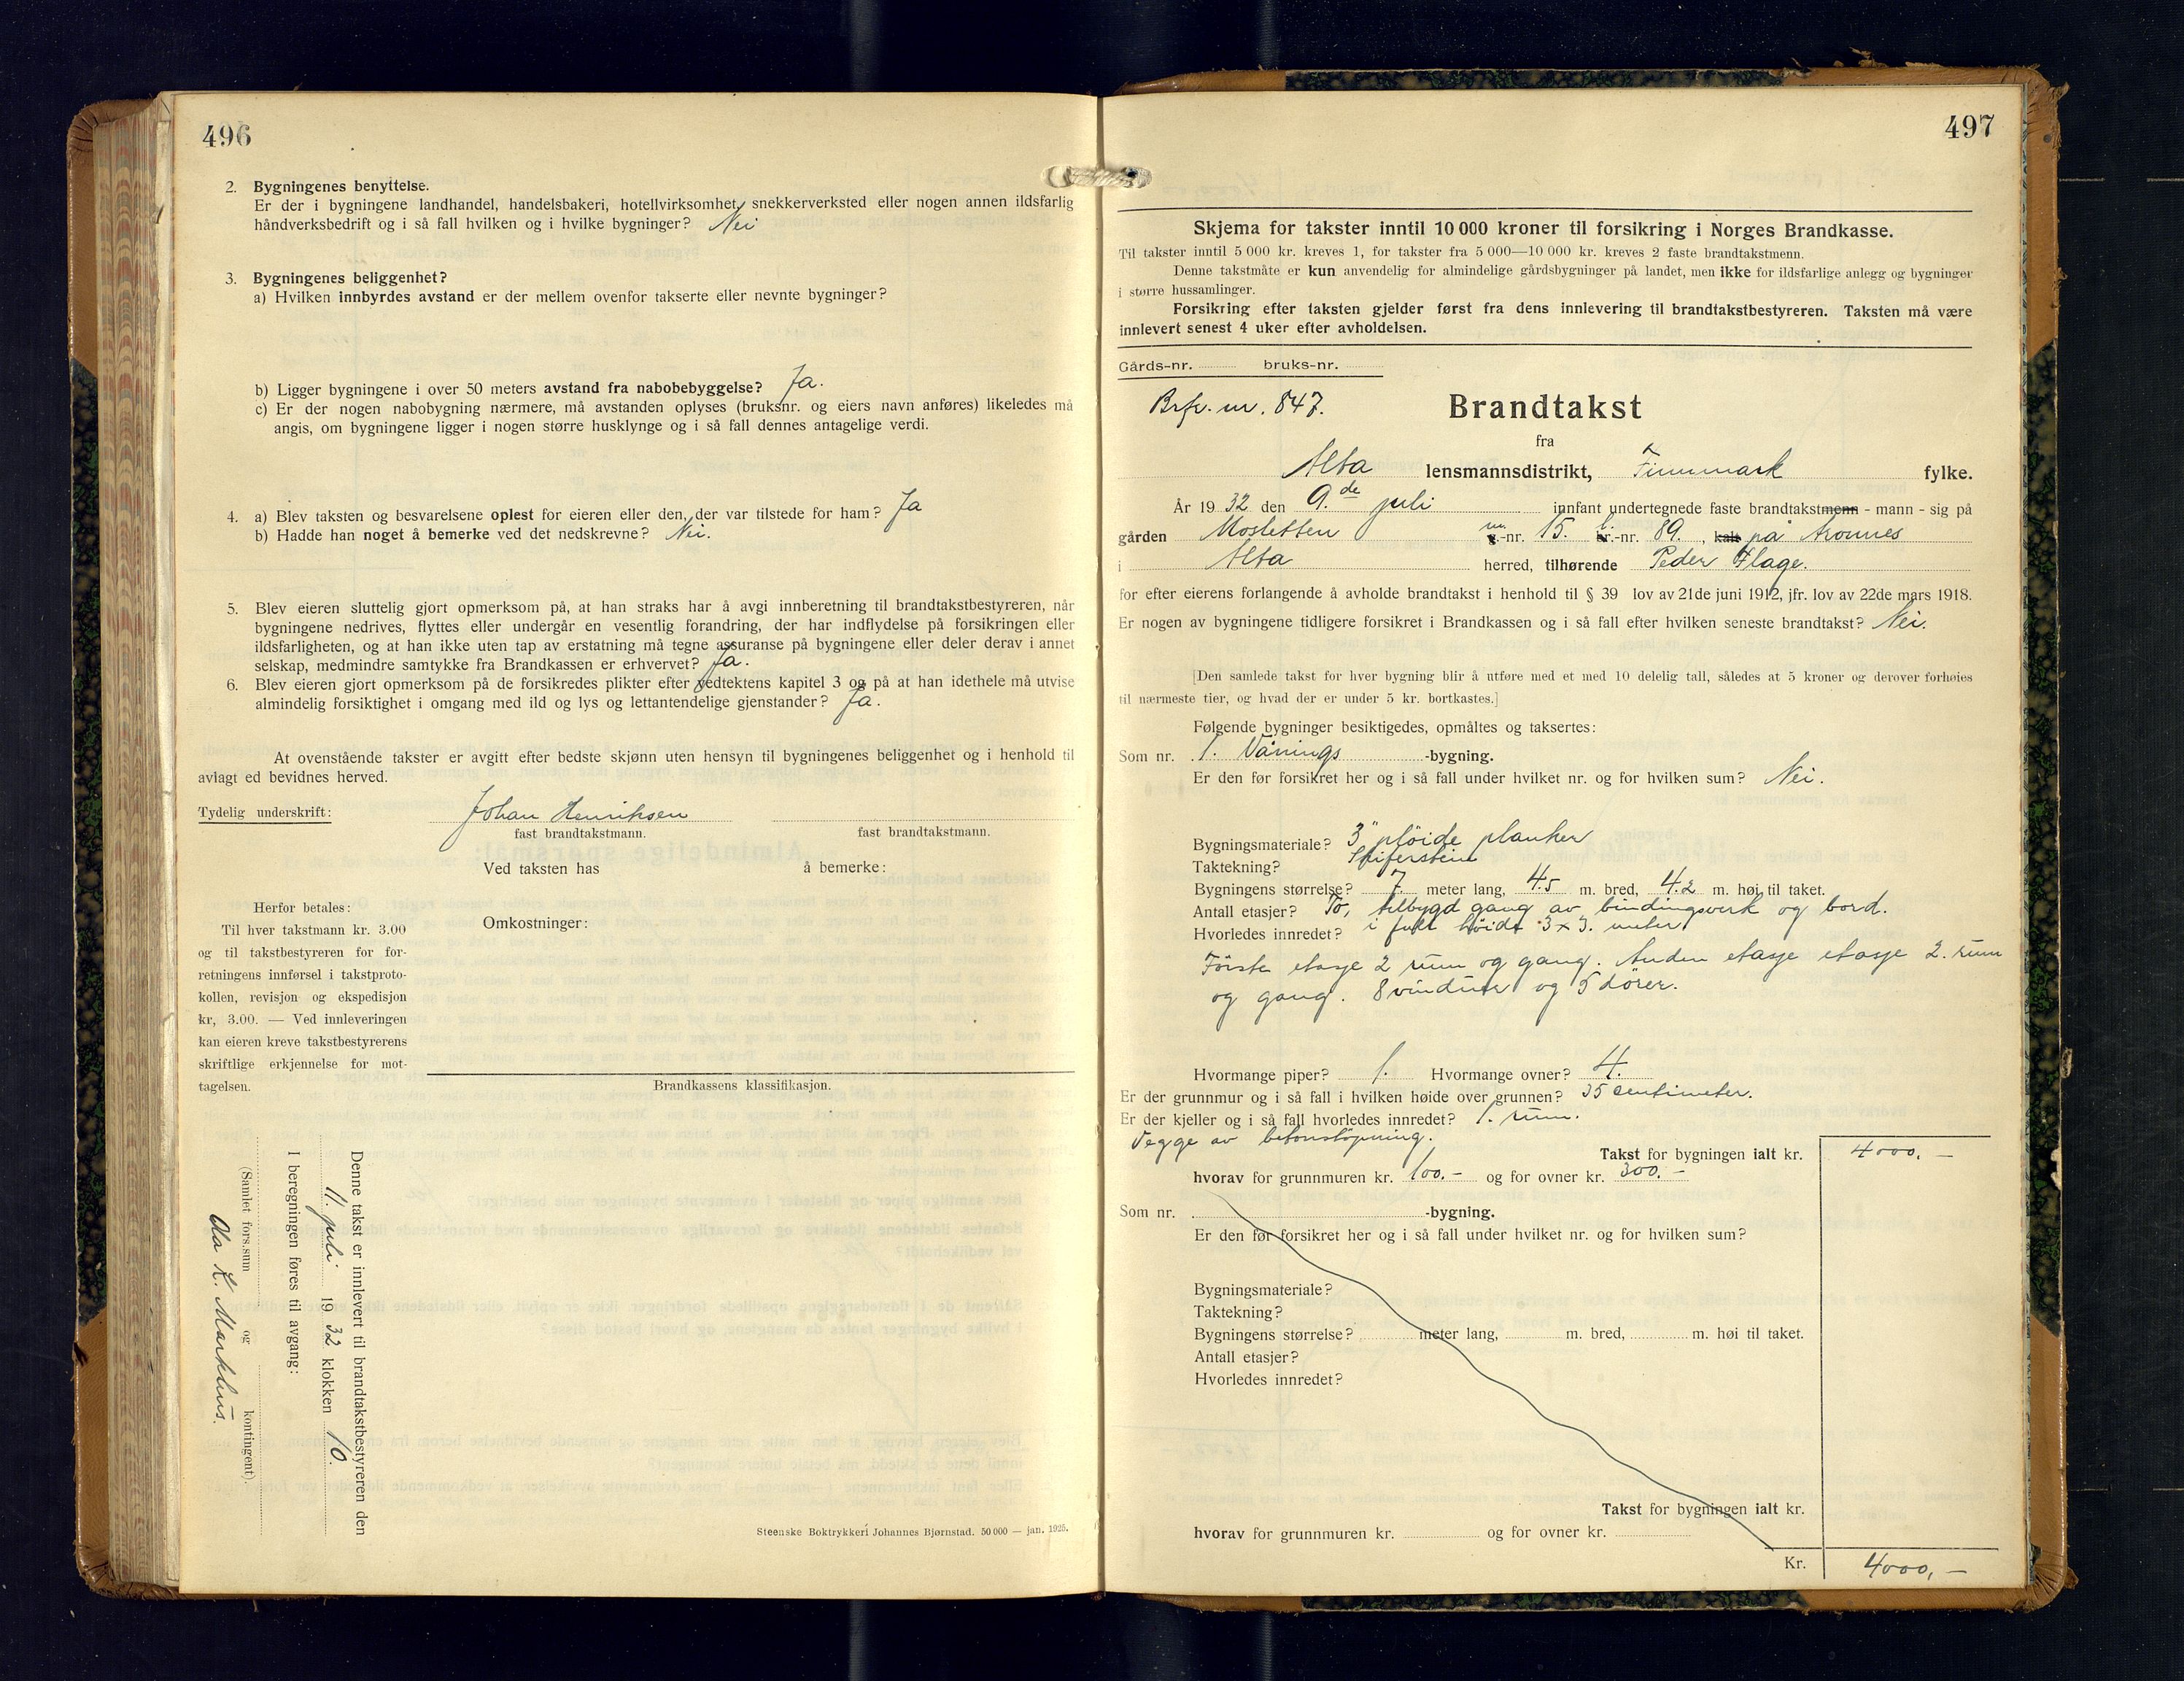 496
2. Bygningenes benyttelse.
Er der i bygningene landhandel, handelsbakeri, hotellvirksomhet, snekkerverksted eller nogen annen ildsfarlig
håndverksbedrift og i så fall hvilken og i hvilke bygninger? Nei
3. Bygningenes beliggenhet?
a) Hvilken innbyrdes avstand er der mellem ovenfor takserte eller nevnte bygninger?
b) Ligger bygningene i over 50 meters avstand fra nabobebyggelse? Ja.
c) Er der nogen nabobygning nærmere, må avstanden oplyses (bruksnr. og eiers navn anføres) likeledes må
angis, om bygningene ligger i nogen større husklynge og i så fall dennes antagelige verdi.
4. a) Blev taksten og besvarelsene oplest for eieren eller den, der var tilstede for ham? Ja
b) Hadde han noget å bemerke ved det nedskrevne? Nei.
5. Blev eieren sluttelig gjort opmerksom på, at han straks har å avgi innberetning til brandtakstbestyreren, når
bygningene nedrives, flyttes eller undergår en vesentlig forandring, der har indflydelse på forsikringen eller
ildsfarligheten, og at han ikke uten tap av erstatning må tegne assuranse på bygningene eller deler derav i annet
selskap, medmindre samtykke fra Brandkassen er erhvervet? Ja.
6. Blev eieren gjort opmerksom på de forsikredes plikter efter vedtektens kapitel 3 og på at han idethele må utvise
almindelig forsiktighet i omgang med ild og lys og lettantendelige gjenstander? Ja.
At ovenstående takster er avgitt efter bedste skjønn uten hensyn til bygningenes beliggenhet og i henhold til
avlagt ed bevidnes herved.
Tydelig underskrift: Johan Henriksen
fast brandtakstmann. fast brandtakstmann.
Ved taksten has å bemerke:
Herfor betales:
Til hver takstmann kr. 3.00
og til takstbestyreren for for-
retningens innførsel i takstproto-
kollen, revisjon og ekspedisjon
kr, 3.00. — Ved innleveringen
kan eieren kreve takstbestyrerens
skriftlige erkjennelse for mot-
tagelsen.
Omkostninger:
Brandkassens klassifikasjon.
Denne takst er innlevert til brandtakstbestyreren den
11. juli 1932 klokken 10.
I beregningen føres til avgang:
(Samlet fors.sum og kontingent).
Ola K. Markhus.
Steenske Boktrykkeri Johannes Bjørnstad. 50 000 — jan. 1925.
497
Skjema for takster inntil 10 000 kroner til forsikring i Norges Brandkasse.
Til takster inntil 5 000 kr. kreves 1, for takster fra 5 000—10 000 kr. kreves 2 faste brandtakstmenn.
Denne takstmåte er kun anvendelig for almindelige gårdsbygninger på landet, men ikke for ildsfarlige anlegg og bygninger
i større hussamlinger.
Forsikring efter taksten gjelder først fra dens innlevering til brandtakstbestyreren. Taksten må være
innlevert senest 4 uker efter avholdelsen.
Gårds-nr. bruks-nr.
Brfr. nr. 847. Brandtakst
fra
Alta lensmannsdistrikt, Finnmark fylke.
År 1932 den 9.de juli innfant undertegnede faste brandtakstmenn - mann - sig på
gården Mosletten g.-nr. 15. br.-nr. 89. , kalt på Aronnes
i Alta herred, tilhørende Peder Flage.
for efter eierens forlangende å avholde brandtakst i henhold til § 39 lov av 21de juni 1912, jfr. lov av 22de mars 1918.
Er nogen av bygningene tidligere forsikret i Brandkassen og i så fall efter hvilken seneste brandtakst? Nei.
[Den samlede takst for hver bygning blir å utføre med et med 10 delelig tall, således at 5 kroner og derover forhøies
til nærmeste tier, og hvad der er under 5 kr. bortkastes.]
Følgende bygninger besiktigedes, opmåltes og taksertes:
Som nr. 1. Vånings -bygning.
Er den før forsikret her og i så fall under hvilket nr. og for hvilken sum? Nei.
Bygningsmateriale? 3" pløide planker
Taktekning? Skiferstein
Bygningens størrelse? 7. meter lang, 4.5 m. bred, 4.2 m. høi til taket.
Antall etasjer? To, tilbygd gang av bindingsverk og bord.
Hvorledes innredet? i full høide 3 x 3. meter
Første etasje 2 rum og gang. Anden etasje etasje 2. rum
og gang. 8 vinduer og 5 dører.
Hvormange piper? 1. Hvormange ovner? 4.
Er der grunnmur og i så fall i hvilken høide over grunnen? 35 centimeter.
Er der kjeller og i så fall hvorledes innredet? 1. rum.
Vegge av betonstøpning.
Takst for bygningen ialt kr. 4000.-
hvorav for grunnmuren kr. 100.- og for ovner kr. 300.-
Som nr. -bygning.
Er den før forsikret her og i så fall under hvilket nr. og for hvilken sum?
Bygningsmateriale?
Taktekning?
Bygningens størrelse? meter lang, m. bred, m. høi til taket.
Antall etasjer?
Hvorledes innredet?
Takst for bygningen ialt kr.
hvorav for grunnmuren kr. og for ovner kr.
Kr. 4000,-